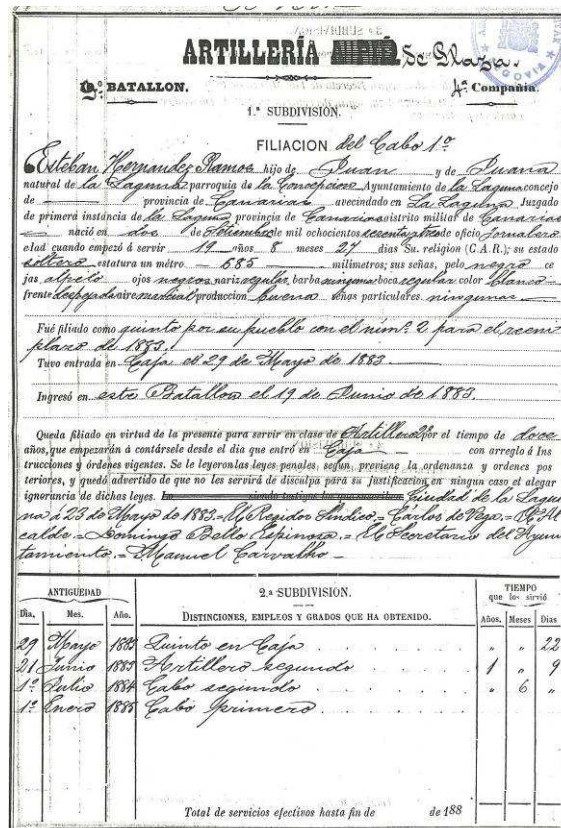 ARTILLERÍA de Plaza.
9.º BATALLON. 4ª Compañía.
1.ª SUBDIVISIÓN.
FILIACION del Cabo 1º
Esteban Hernandez Ramos hijo de Juan y de Juana
natural de la Laguna parroquia de la Concepcion Ayuntamiento de la Laguna concejo
de provincia de Canarias avecindado en La Laguna Juzgado
de primera instancia de la Laguna provincia de Canarias distrito militar de Canarias
nació en dos de Setiembre de mil ochocientos sesenta y tres de oficio Jornalero
edad cuando empezó á servir 19 años 8 meses 27 dias Su religion (C.A.R.); su estado
soltero estatura un métro 685 milimetros; sus señas, pelo negro ce
jas al pelo ojos negros nariz regular, barba ninguna boca regular color blanco
frente despejada aire marcial produccion buena señas particulares ningunas
Fué filiado como quinto por su pueblo con el núm.º 2 para el reem
plazo de 1883.
Tuvo entrada en Caja el 29 de Mayo de 1883
Ingresó en este Batallon el 19 de Junio de 1883
Queda filiado en virtud de la presente para servir en clase de Artillero 2º por el tiempo de doce
años, que empezarán á contársele desde el dia que entró en Caja con arreglo á Ins
trucciones y órdenes vigentes. Se le leyeron las leyes penales segun previene la ordenanza y ordenes pos
teriores, y quedó advertido de que no les servirá de disculpa para su justificacion en ningun caso el alegar
ignorancia de dichas leyes. Ciudad de la Lagu
na á 23 de Mayo de 1883 = El Regidor Síndico = Cárlos de Vega = El Al
calde = Domingo Bello Espinosa = El Secretario del Ayun
tamiento = Manuel Carvalho
ANTIGUEDAD 2.ª SUBDIVISION. TIEMPO que los sirvió
Dia. Mes. Año. DISTINCIONES, EMPLEOS Y GRADOS QUE HA OBTENIDO. Años. Meses Dias
29 Mayo 1883 Quinto en Caja " " 22
21 Junio 1883 Artillero segundo 1 " 9
1º Julio 1884 Cabo segundo " 6 "
1º Enero 1885 Cabo primero
Total de servicios efectivos hasta fin de de 188